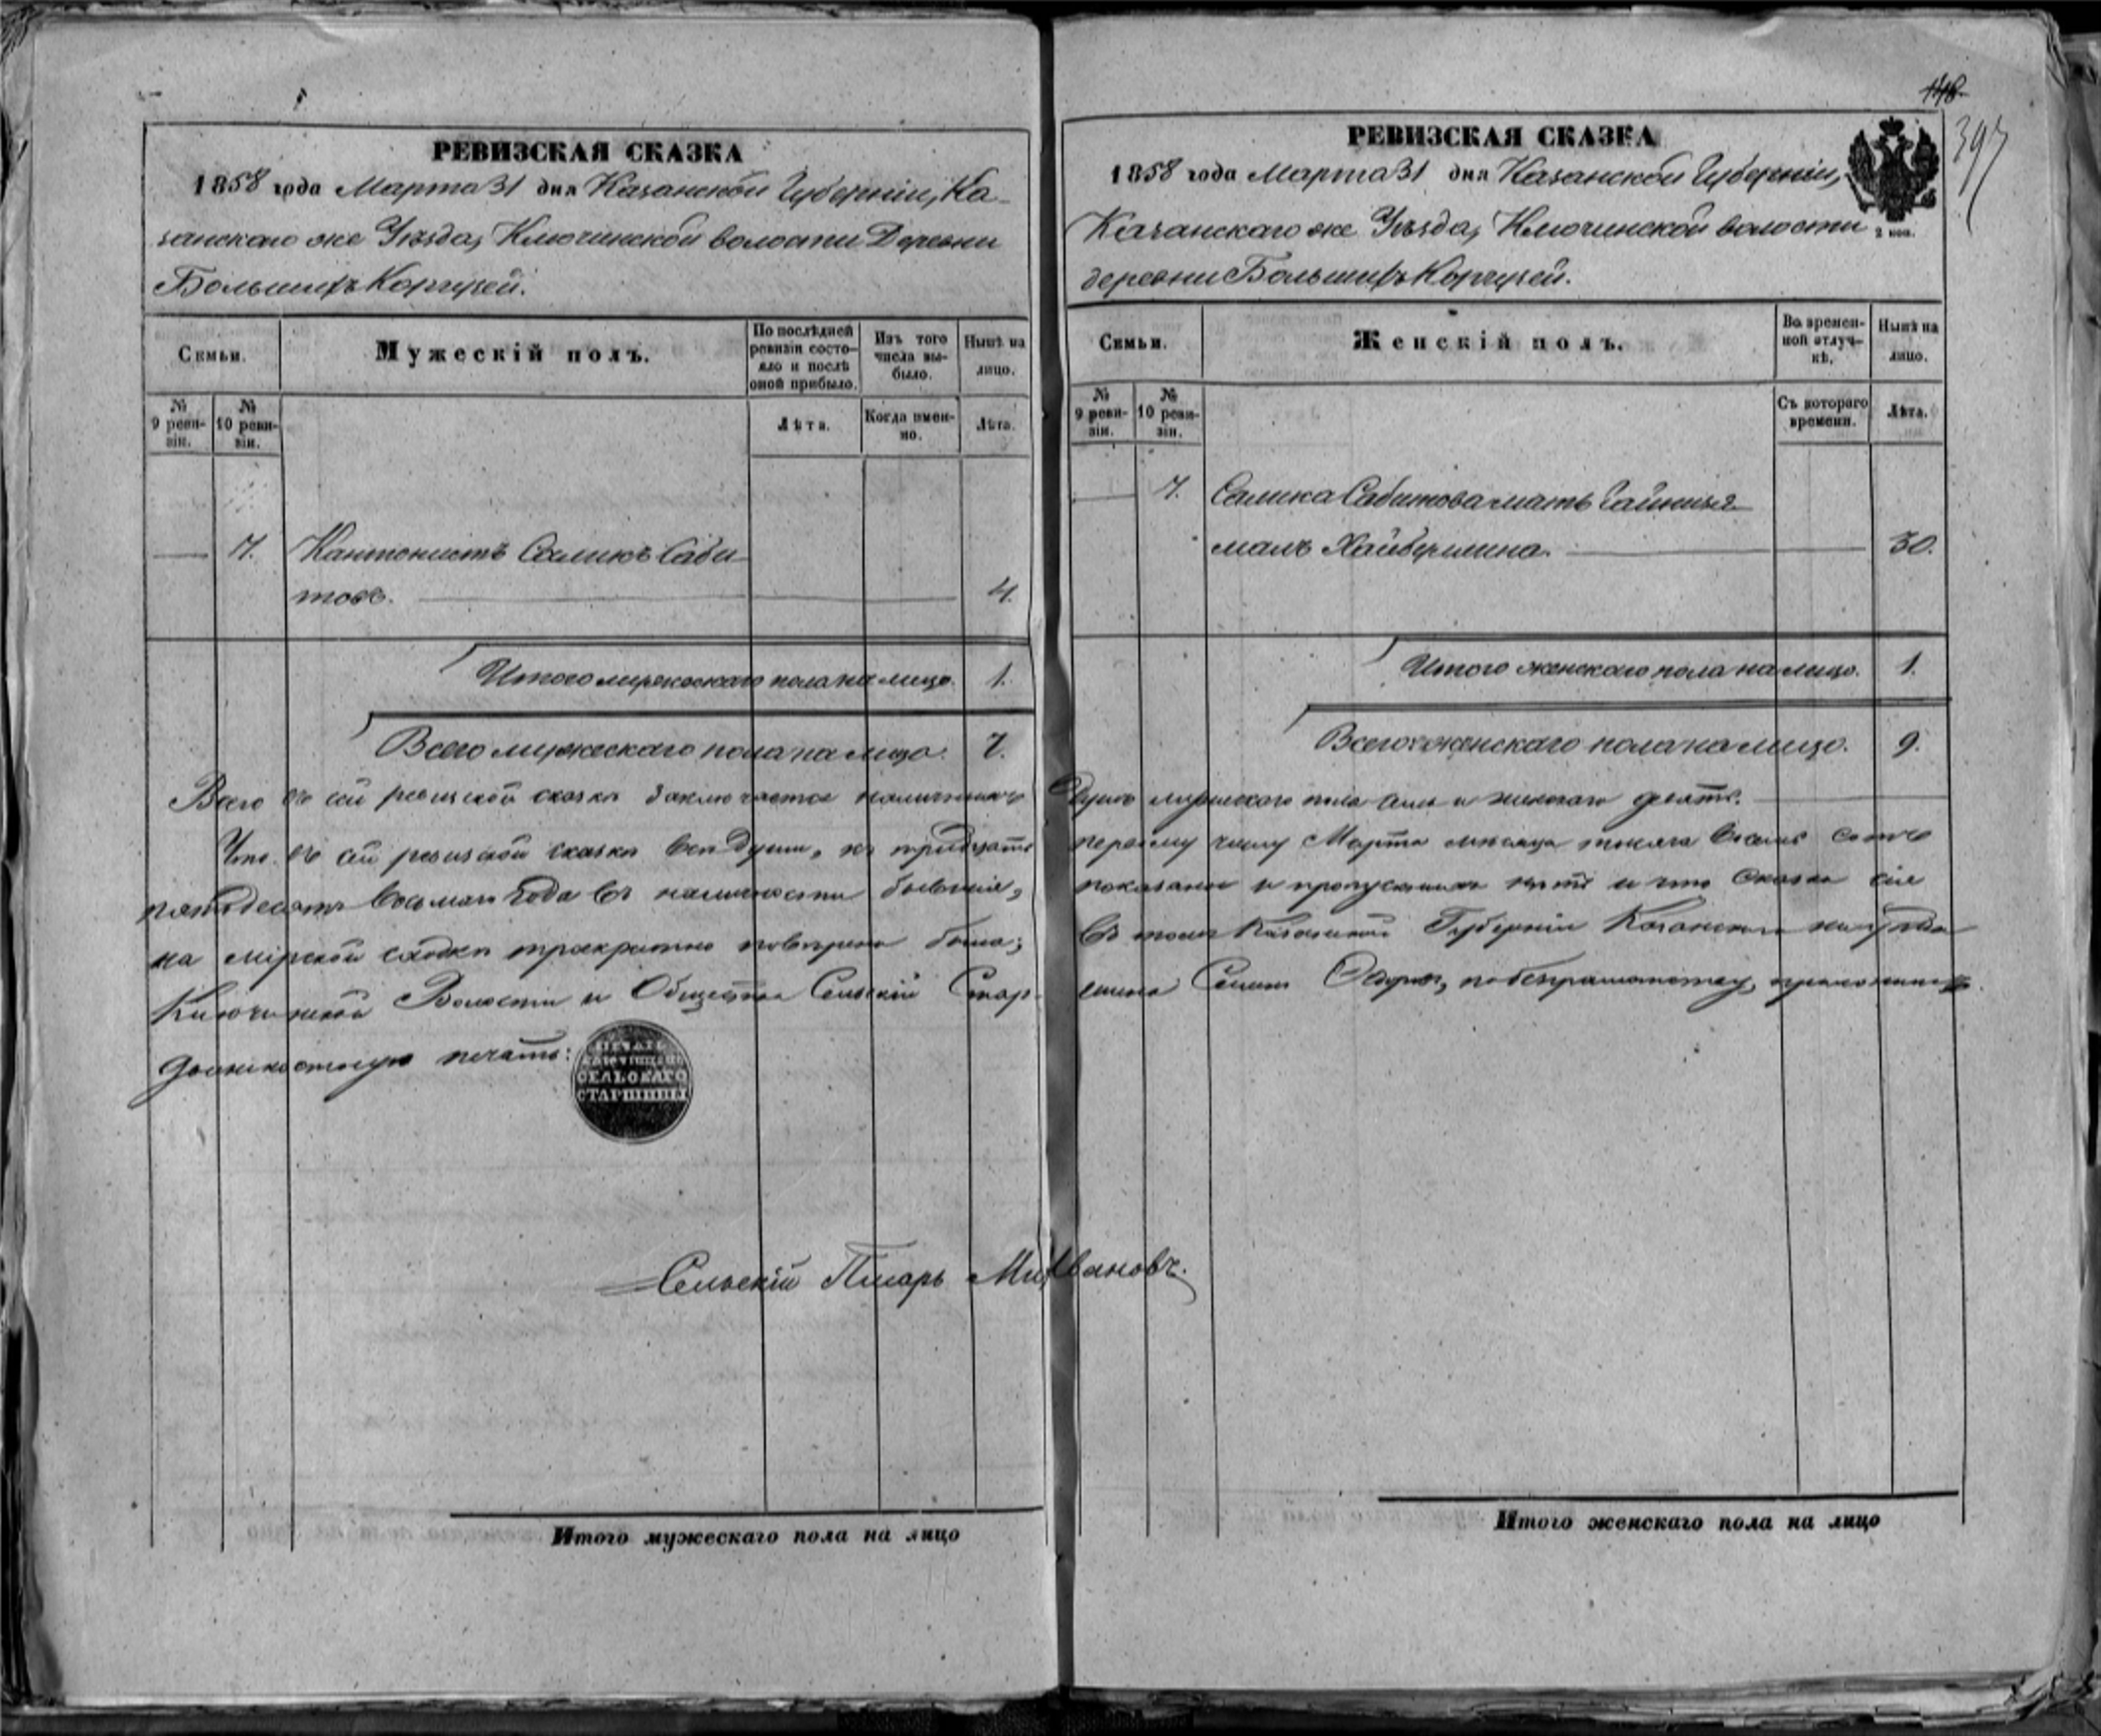 РЕВИЗСКАЯ СКАЗКА
1858 года Марта 31 дня Казанской Губерніи, Ка-
занскаго же Уѣзда, Ключинской волости Деревни
Большихъ Коргузей.
Семьи.
Мужескій полъ.
По послѣдней ревизіи состояло и послѣ оной прибыло.
Изъ того числа выбыло.
Нынѣ на лицо.
№ 9 ревизіи.
№ 10 ревизіи.
Лѣта.
Когда именно.
Лѣта.
7. Кантонистъ Саликъ Саби-
товъ. 4.
Итого мужескаго пола на лицо. 1.
Всего мужескаго пола на лицо. 7.
148
397
РЕВИЗСКАЯ СКАЗКА
1858 года Марта 31 дня Казанской Губерніи,
Казанскаго же Уѣзда, Ключинской волости
деревни Большихъ Коргузей.
2 коп.
Семьи.
Женскій полъ.
Во временной отлучкѣ.
Нынѣ на лицо.
№ 9 ревизіи.
№ 10 ревизіи.
Съ котораго времени.
Лѣта.
7. Салика Сабитова мать
30.
Итого женскаго пола на лицо. 1.
Всего женскаго пола на лицо. 9.
Всего въ сей ревизской сказкѣ заключается наличныхъ душъ мужескаго пола семь и женскаго девять.
Что въ сей ревизской сказкѣ всѣ души, къ первому числу Марта мѣсяца тысяча восемь сотъ
пятьдесятъ восьмаго года въ наличности бывшія, показаны и пропущенныхъ нѣтъ и что сказка сія
на мірской сходкѣ троекратно повѣрена была; въ томъ Казанской Губерніи Казанскаго уѣзда
Ключинской Волости и Общества Сельскій Старшина по безграмотству, приложилъ
должностную печать:
ПЕЧАТЬ
КЛЮЧИЩЕНС
СЕЛЬСКАГО
СТАРШИНЫ
Сельскій Писарь М. Ивановъ.
Итого мужескаго пола на лицо
Итого женскаго пола на лицо